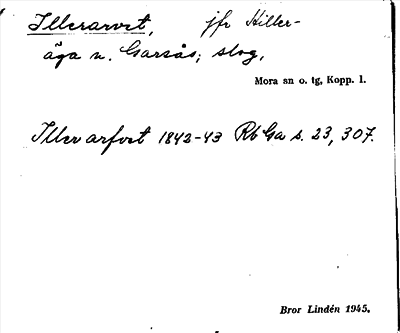 Illerarvet, jfr Hiller-
åga n. Garsås; skog,
Mora sn o. tg, Kopp. l.
Iller arfvet 1842-43 Rb Ga s. 23, 307.
Bror Lindén 1945.